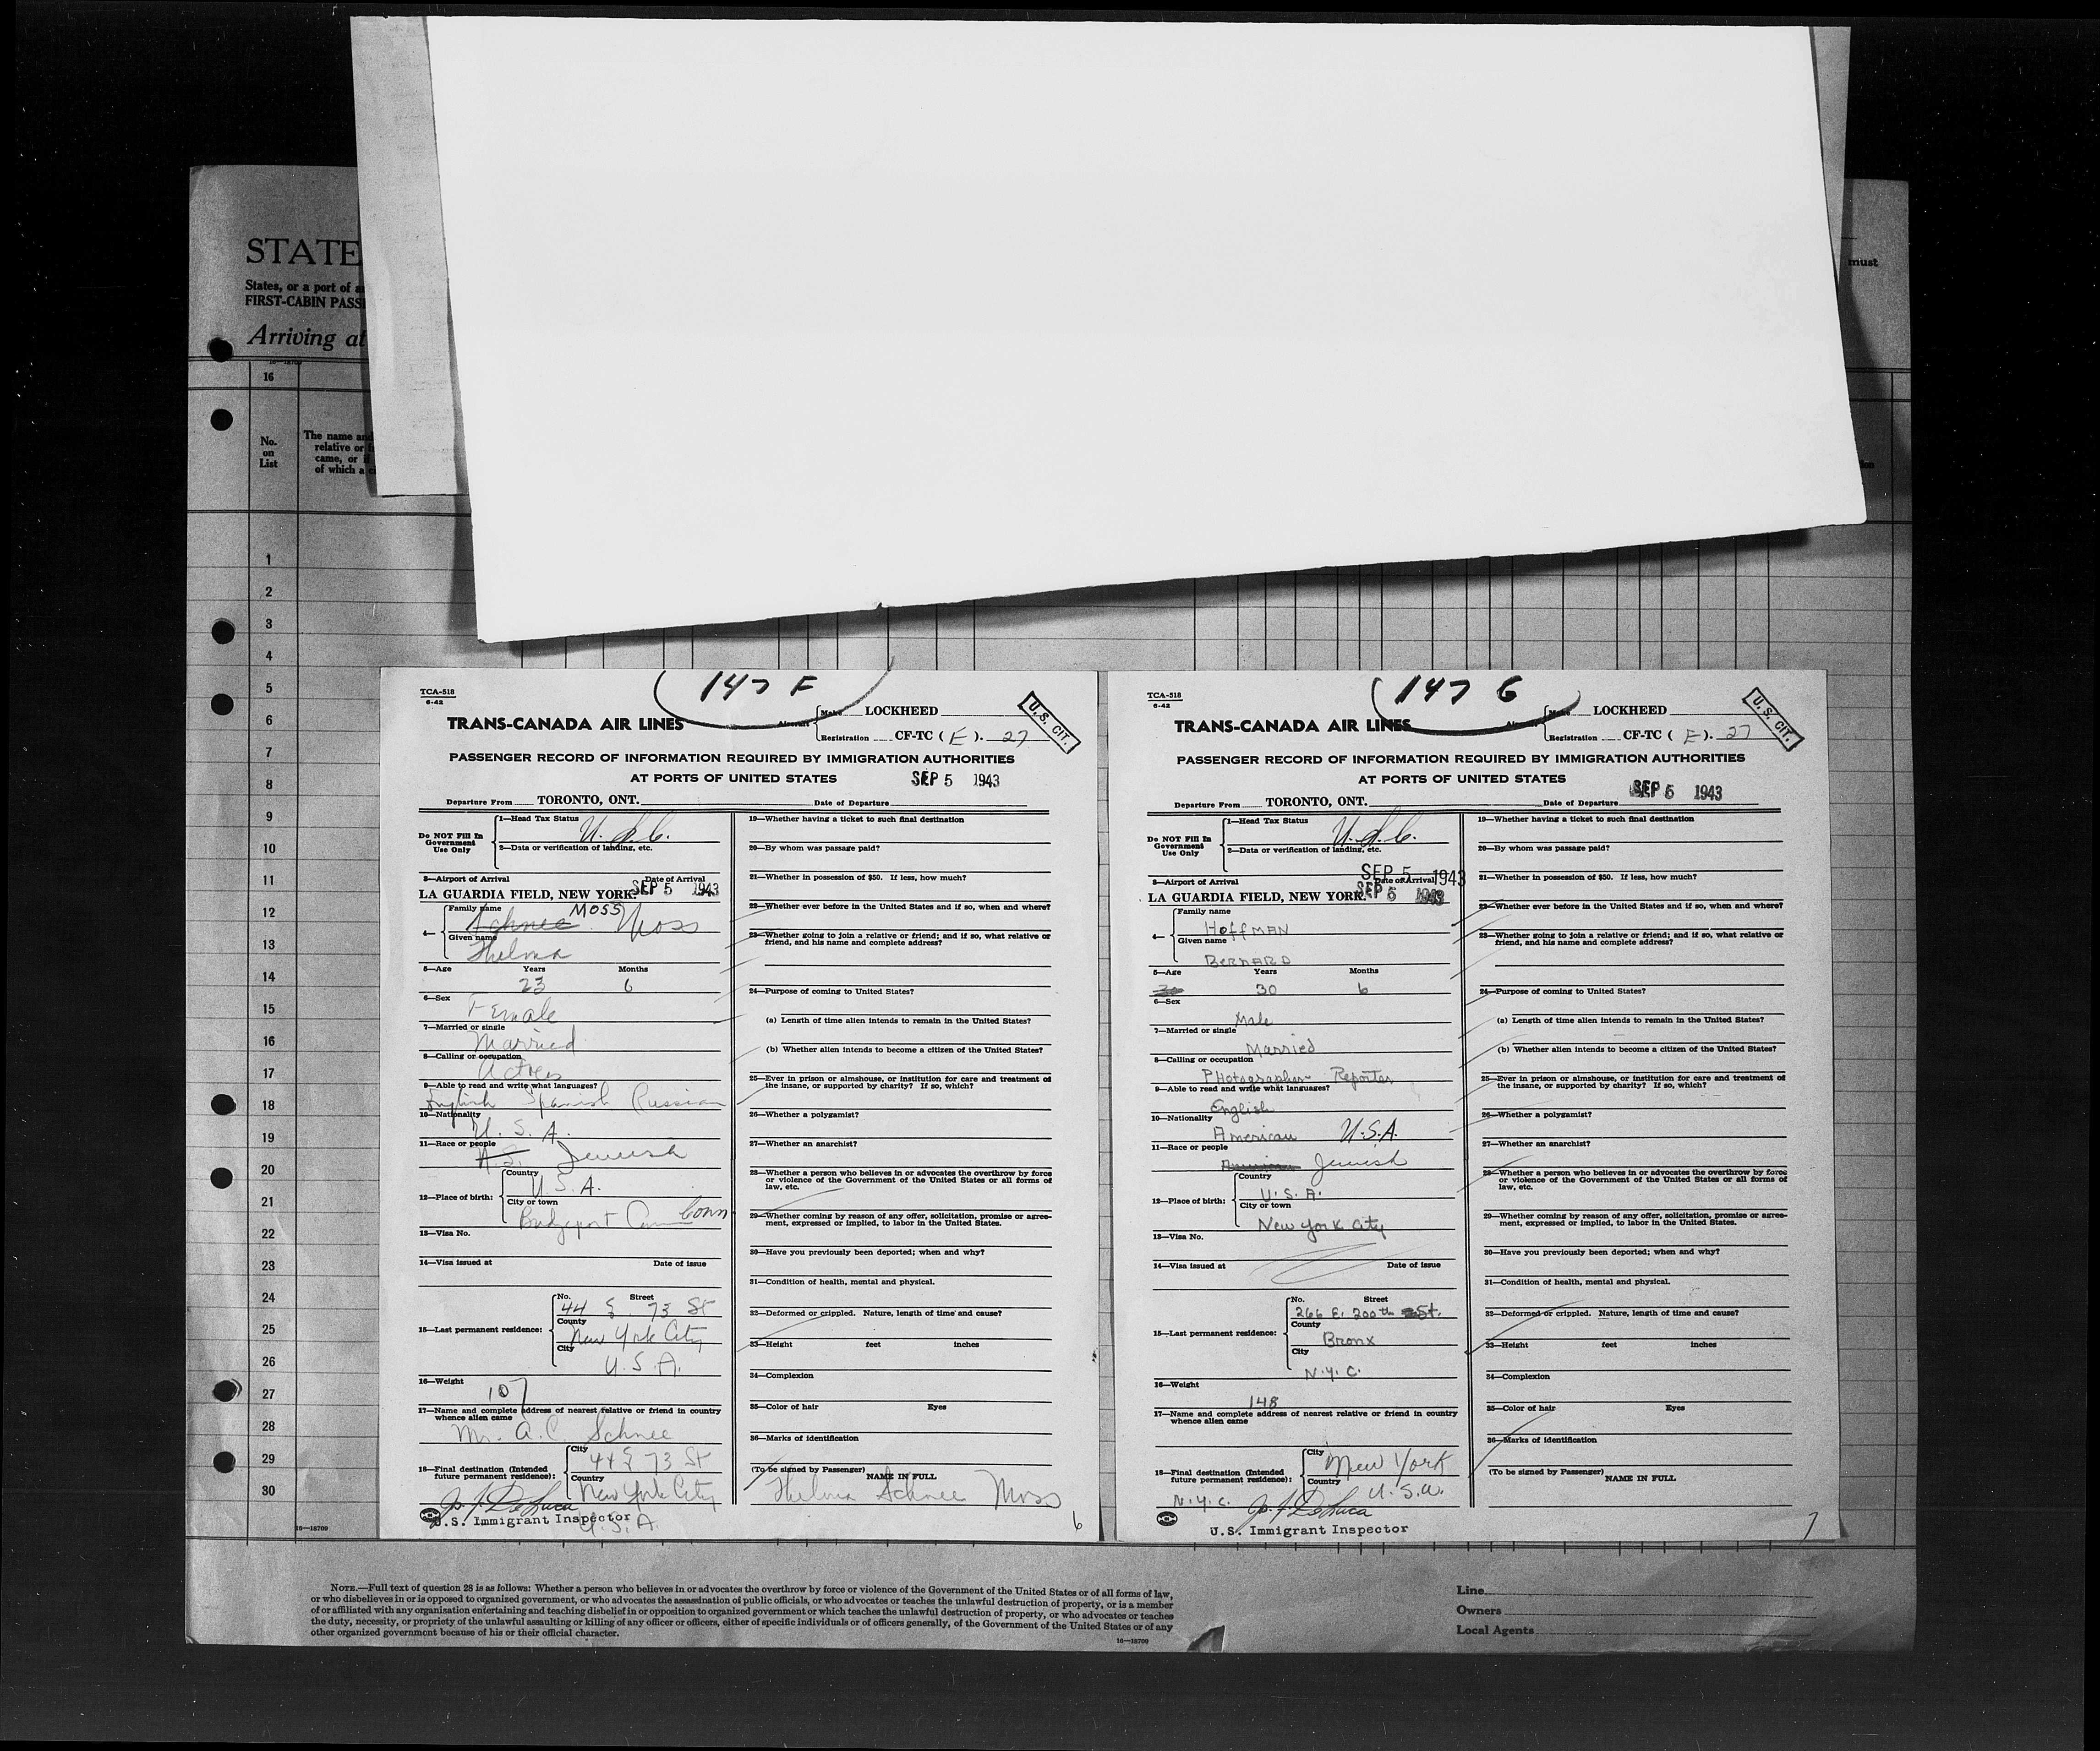 STATE
States, or a port of a
FIRST-CABIN PASS
Arriving at
must
16
No.
on
List
The name and
relative or
came, or if
of which a
1
2
3
4
5
6
7
8
9
10
11
12
13
14
15
16
17
18
19
20
21
22
23
24
25
26
27
28
29
30
16—18709
147 F
TCA-518
6-42
TRANS-CANADA AIR LINES
Aircraft
Make LOCKHEED
Registration CF-TC ( E ). 27
U.S. CIT.
PASSENGER RECORD OF INFORMATION REQUIRED BY IMMIGRATION AUTHORITIES
AT PORTS OF UNITED STATES
SEP 5 1943
Departure From TORONTO, ONT. Date of Departure
Do NOT Fill In
Government
Use Only
1—Head Tax Status
U.S.C.
2—Data or verification of landing, etc.
3—Airport of Arrival Date of Arrival
LA GUARDIA FIELD, NEW YORK. SEP 5 1943
4—
Family name
Schnee MOSS Moss
Given name
Thelma
5—Age Years Months
23 6
6—Sex
Female
7—Married or single
Married
8—Calling or occupation
Actress
9—Able to read and write what languages?
English Spanish Russian
10—Nationality
U. S. A.
11—Race or people
U.S. Jewish
12—Place of birth:
Country
U.S.A.
City or town
Bridgeport Conn Conn
13—Visa No.
14—Visa issued at Date of issue
15—Last permanent residence:
No. Street
44 E 73 St
County
New York City
City
U.S.A.
16—Weight
107
17—Name and complete address of nearest relative or friend in country
whence alien came
Mr. A.C. Schnee
18—Final destination (Intended
future permanent residence):
City
44 E 73 St
Country
New York City
U.S.A.
Jos. J. DeLuca
U.S. Immigrant Inspector
19—Whether having a ticket to such final destination
20—By whom was passage paid?
21—Whether in possession of $50. If less, how much?
22—Whether ever before in the United States and if so, when and where?
23—Whether going to join a relative or friend; and if so, what relative or
friend, and his name and complete address?
24—Purpose of coming to United States?
(a) Length of time alien intends to remain in the United States?
(b) Whether alien intends to become a citizen of the United States?
25—Ever in prison or almshouse, or institution for care and treatment of
the insane, or supported by charity? If so, which?
26—Whether a polygamist?
27—Whether an anarchist?
28—Whether a person who believes in or advocates the overthrow by force
or violence of the Government of the United States or all forms of
law, etc.
29—Whether coming by reason of any offer, solicitation, promise or agree-
ment, expressed or implied, to labor in the United States.
30—Have you previously been deported; when and why?
31—Condition of health, mental and physical.
32—Deformed or crippled. Nature, length of time and cause?
33—Height feet inches
34—Complexion
35—Color of hair Eyes
36—Marks of identification
(To be signed by Passenger) NAME IN FULL
Thelma Schnee Moss
6
147 G
TCA-518
6-42
TRANS-CANADA AIR LINES
Aircraft
Make LOCKHEED
Registration CF-TC ( E ). 27
U.S. CIT.
PASSENGER RECORD OF INFORMATION REQUIRED BY IMMIGRATION AUTHORITIES
AT PORTS OF UNITED STATES
SEP 5 1943
Departure From TORONTO, ONT. Date of Departure
Do NOT Fill In
Government
Use Only
1—Head Tax Status
U.S.C.
2—Data or verification of landing, etc.
SEP 5 1943
3—Airport of Arrival Date of Arrival
LA GUARDIA FIELD, NEW YORK. SEP 5 1943
4—
Family name
HoffMAN
Given name
BERNARD
5—Age Years Months
30 30 6
6—Sex
Male
7—Married or single
Married
8—Calling or occupation
Photographer-Reporter
9—Able to read and write what languages?
English
10—Nationality
American U.S.A.
11—Race or people
American Jewish
12—Place of birth:
Country
U.S.A.
City or town
New York City
13—Visa No.
14—Visa issued at Date of issue
15—Last permanent residence:
No. Street
266 E. 200th St.
County
Bronx
City
N.Y.C.
16—Weight
148
17—Name and complete address of nearest relative or friend in country
whence alien came
18—Final destination (Intended
future permanent residence):
City
New York
Country
U.S.A.
N.Y.C.
Jos. J. DeLuca
U.S. Immigrant Inspector
19—Whether having a ticket to such final destination
20—By whom was passage paid?
21—Whether in possession of $50. If less, how much?
22—Whether ever before in the United States and if so, when and where?
23—Whether going to join a relative or friend; and if so, what relative or
friend, and his name and complete address?
24—Purpose of coming to United States?
(a) Length of time alien intends to remain in the United States?
(b) Whether alien intends to become a citizen of the United States?
25—Ever in prison or almshouse, or institution for care and treatment of
the insane, or supported by charity? If so, which?
26—Whether a polygamist?
27—Whether an anarchist?
28—Whether a person who believes in or advocates the overthrow by force
or violence of the Government of the United States or all forms of
law, etc.
29—Whether coming by reason of any offer, solicitation, promise or agree-
ment, expressed or implied, to labor in the United States.
30—Have you previously been deported; when and why?
31—Condition of health, mental and physical.
32—Deformed or crippled. Nature, length of time and cause?
33—Height feet inches
34—Complexion
35—Color of hair Eyes
36—Marks of identification
(To be signed by Passenger) NAME IN FULL
7
NOTE.—Full text of question 28 is as follows: Whether a person who believes in or advocates the overthrow by force or violence of the Government of the United States or of all forms of law,
or who disbelieves in or is opposed to organized government, or who advocates the assassination of public officials, or who advocates or teaches the unlawful destruction of property, or is a member
of or affiliated with any organization entertaining and teaching disbelief in or opposition to organized government or which teaches the unlawful destruction of property, or who advocates or teaches
the duty, necessity, or propriety of the unlawful assaulting or killing of any officer or officers, either of specific individuals or of officers generally, of the Government of the United States or of any
other organized government because of his or their official character.
16—18709
Line
Owners
Local Agents